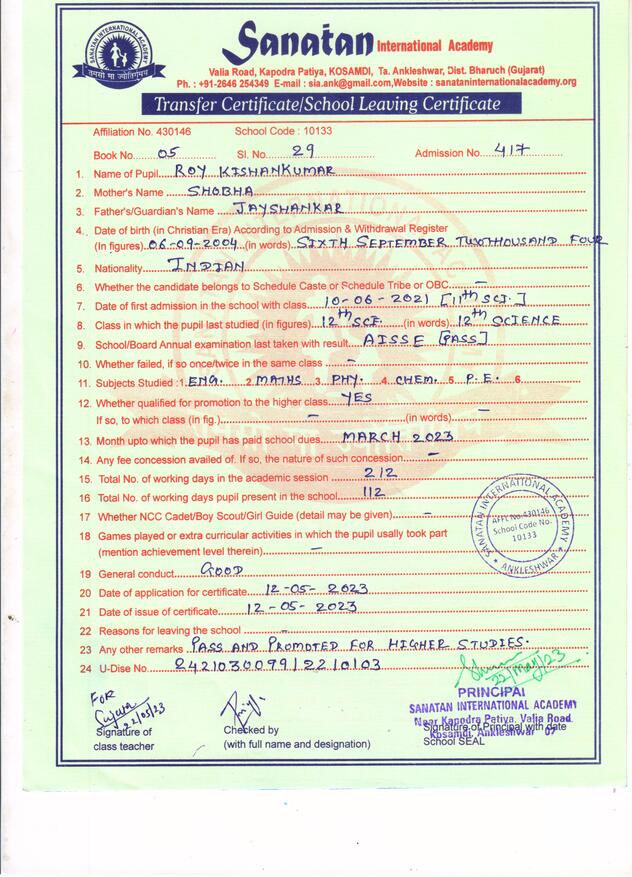 SANATAN INTERNATIONAL ACADEMY
तमसो मा ज्योतिर्गमय
Sanatan International Academy
Valia Road, Kapodra Patiya, KOSAMDI, Ta. Ankleshwar, Dist. Bharuch (Gujarat)
Ph. : +91-2646 254349 E-mail : sia.ank@gmail.com,Website : sanataninternationalacademy.org
Transfer Certificate/School Leaving Certificate
Affiliation No. 430146 School Code : 10133
Book No. 05 Sl. No. 29 Admission No. 417
1. Name of Pupil ROY KISHANKUMAR
2. Mother's Name SHOBHA
3. Father's/Guardian's Name JAYSHANKAR
4. Date of birth (in Christian Era) According to Admission & Withdrawal Register
(In figures) 06-09-2004 (in words) SIXTH SEPTEMBER TWOTHOUSAND FOUR
5. Nationality INDIAN
6. Whether the candidate belongs to Schedule Caste or Schedule Tribe or OBC. —
7. Date of first admission in the school with class 10-06-2021 [11th SCI.]
8. Class in which the pupil last studied (in figures) 12th SCI. (in words) 12th SCIENCE
9. School/Board Annual examination last taken with result AISSE [PASS]
10. Whether failed, if so once/twice in the same class —
11. Subjects Studied : 1. ENG. 2 MATHS 3. PHY. 4. CHEM. 5. P.E. 6.
12. Whether qualified for promotion to the higher class YES
If so, to which class (in fig.) — (in words) —
13. Month upto which the pupil has paid school dues MARCH 2023
14. Any fee concession availed of. If so, the nature of such concession —
15. Total No. of working days in the academic session 212
16 Total No. of working days pupil present in the school 112
17 Whether NCC Cadet/Boy Scout/Girl Guide (detail may be given) —
18 Games played or extra curricular activities in which the pupil usally took part
(mention achievement level therein) —
SANATAN INTERNATIONAL ACADEMY
AFFI. No. 430146
School Code No.
10133
★ ANKLESHWAR ★
19 General conduct GOOD
20 Date of application for certificate 12-05-2023
21 Date of issue of certificate 12-05-2023
22 Reasons for leaving the school —
23 Any other remarks PASS AND PROMOTED FOR HIGHER STUDIES.
24 U-Dise No. 242103009912210103
22/May/23
PRINCIPAL
SANATAN INTERNATIONAL ACADEMY
Near Kapodra Patiya, Valia Road
Kosamdi, Ankleshwar 07
FOR
Sujata
22/05/23
Signature of
class teacher
Checked by
(with full name and designation)
Signature of Principal with date
School SEAL